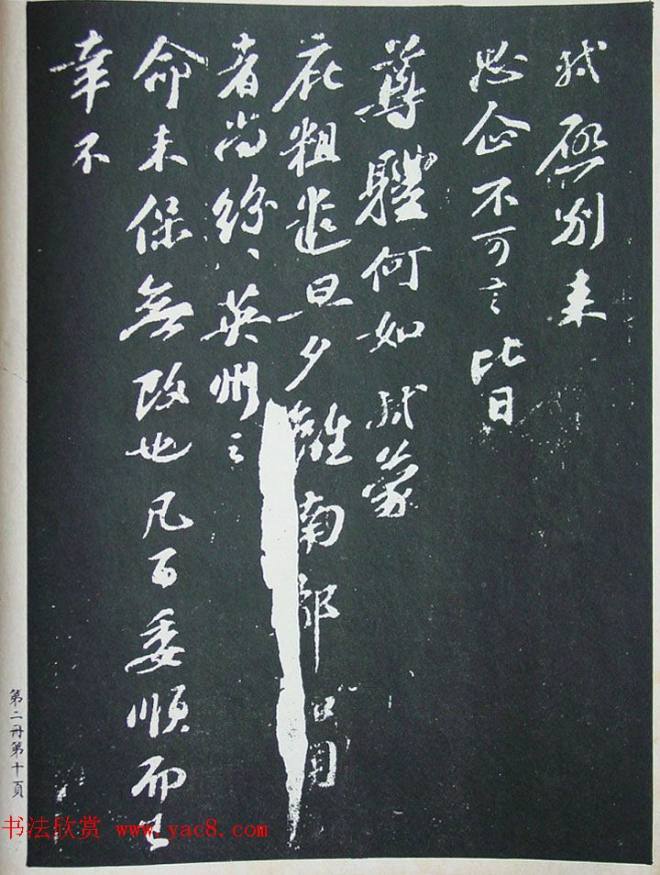 軾啓別來
思企不可言比日
尊體何如軾蒙
庇粗遣旦夕離南部
者尚紛〻英州之
命未保無改也凡百委順而已
幸不
第二冊第十頁
书法欣赏 www.yac8.com